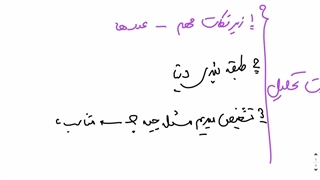 1 زیر نکات مهم – عددها
2 طبقه بندی دیتا
3 تشخیص بدیم مسئله چیه
ت تحلیل